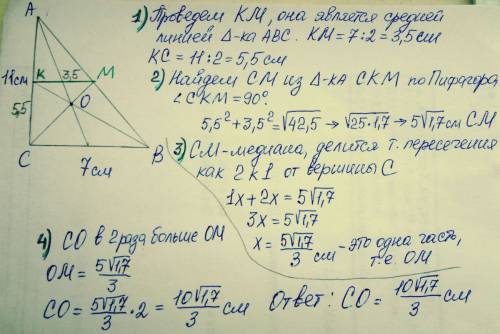 A
11см
К
3,5
М
5,5
О
С
7см
В
1) Проведем КМ, она является средней
линией Δ-ка АВС. КМ=7:2=3,5см
КС = 11:2=5,5см
2) Найдем СМ из Δ-ка СКМ по Пифагору,
∠СКМ=90°.
5,5²+3,5²=√42,5 → √25·1,7 → 5√1,7см СМ
3) СМ-медиана, делится т. пересечения
как 2 к 1 от вершины С
1х+2х = 5√1,7
3х = 5√1,7
х = 5√1,7/3 см - это одна часть,
т.е. ОМ
4) СО в 2 раза больше ОМ
ОМ = 5√1,7/3
СО = 5√1,7/3 · 2 = 10√1,7/3 см
Ответ: СО = 10√1,7/3 см